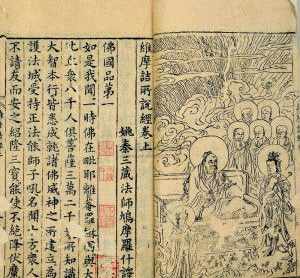 維摩詰所說經卷上
姚秦三藏法師鳩摩羅什譯
佛國品第一
如是我聞一時佛在毗耶離菴羅樹園與大
比丘衆八千人俱菩薩三萬二千衆所知識
大智本行皆悉成就諸佛威神之所建立爲
護法城受持正法能師子吼名聞十方衆人
不請友而安之紹隆三寶能使不絕降伏魔